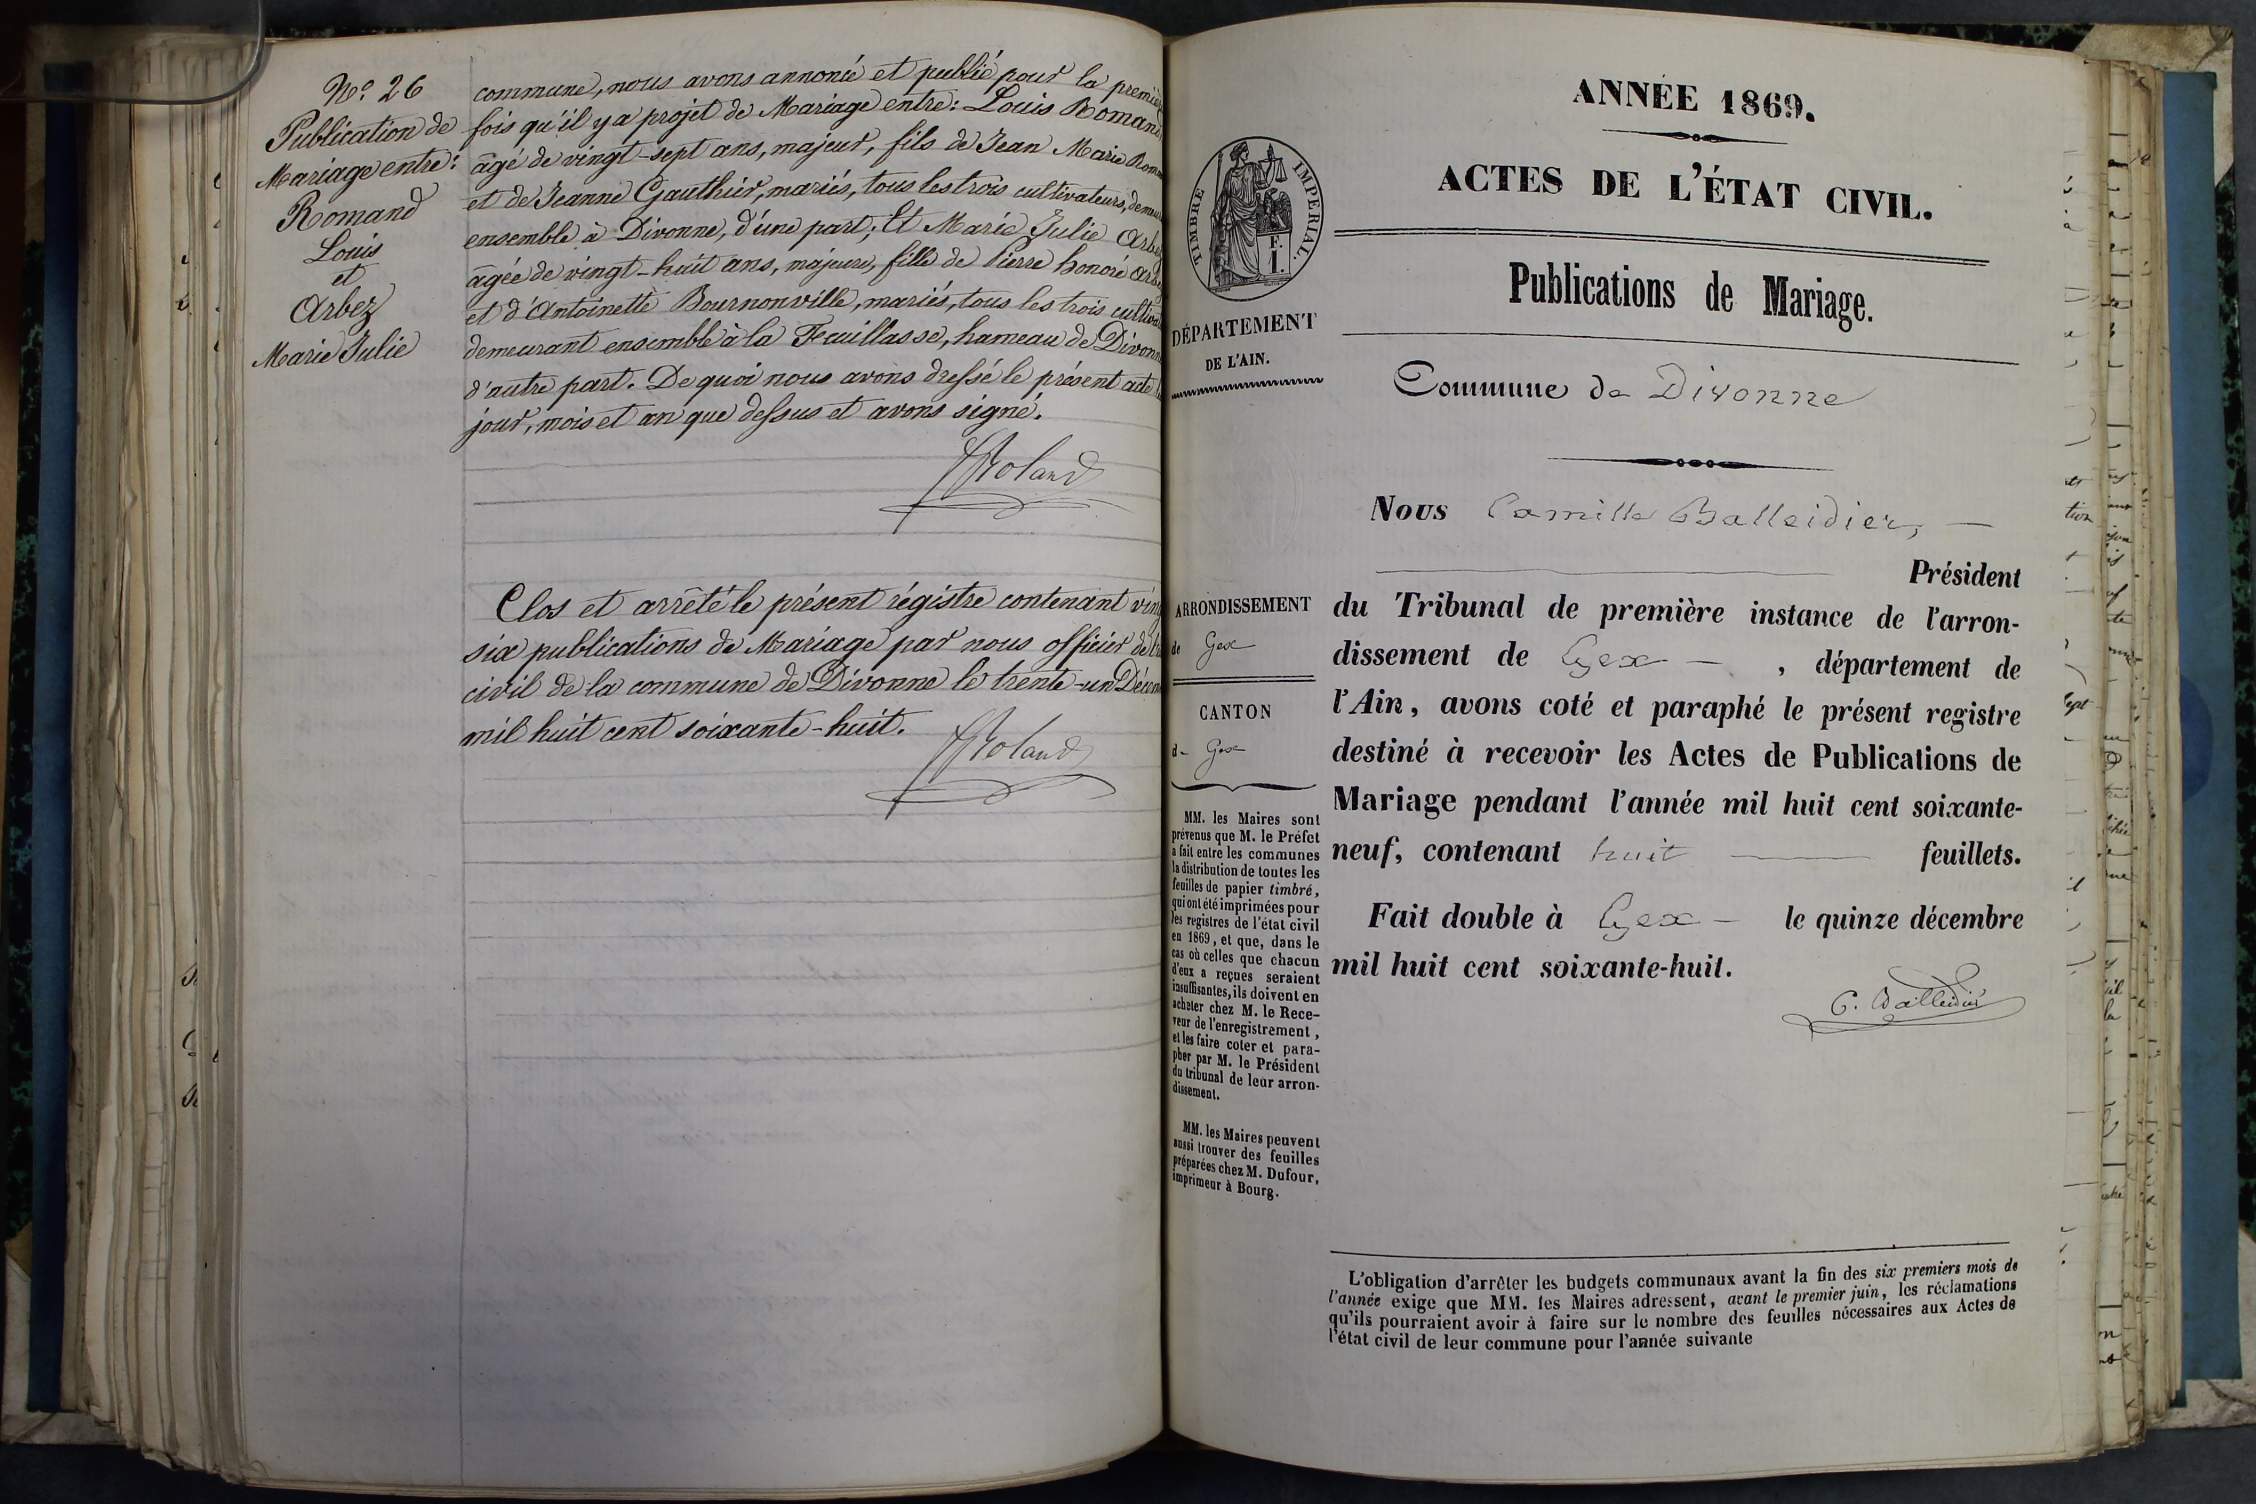 Nº 26
Publication de
Mariage entre:
Romand
Louis
et
Arbez
Marie Julie
commune, nous avons annoncé et publié pour la premiè
fois qu'il y a projet de Mariage entre: Louis Romand,
âgé de vingt-sept ans, majeur, fils de Jean Marie Rom
et de Jeanne Gauthier, mariés, tous les trois cultivateurs, demeur
ensemble à Divonne, d'une part; Et Marie Julie Arbe
âgée de vingt-huit ans, majeure, fille de Pierre honoré Arbe
et d'Antoinette Bournonville, mariés, tous les trois cultiva
demeurant ensemble à la Feuillasse, hameau de Divonn
d'autre part. De quoi nous avons dressé le présent acte
jour, mois et an que dessus et avons signé.
Roland
Clos et arrêté le présent régistre contenant ving
six publications de Mariage par nous officier de
civil de la commune de Divonne le trente-un Décem
mil huit cent soixante-huit.
Roland
ANNÉE 1869.
ACTES DE L'ÉTAT CIVIL.
Publications de Mariage.
TIMBRE IMPERIAL.
F.
I.
DÉPARTEMENT
DE L'AIN.
Commune de Divonne
Nous Camille Balleidier,
Président
du Tribunal de première instance de l'arron-
dissement de Gex - , département de
l'Ain, avons coté et paraphé le présent registre
destiné à recevoir les Actes de Publications de
Mariage pendant l'année mil huit cent soixante-
neuf, contenant huit feuillets.
Fait double à Gex - le quinze décembre
mil huit cent soixante-huit.
C. Balleidier
ARRONDISSEMENT
de Gex
CANTON
d- Gex
MM. les Maires sont
prévenus que M. le Préfet
a fait entre les communes
la distribution de toutes les
feuilles de papier timbré,
qui ont été imprimées pour
les registres de l'état civil
en 1869, et que, dans le
cas où celles que chacun
d'eux a reçues seraient
insuffisantes, ils doivent en
acheter chez M. le Rece-
veur de l'enregistrement,
et les faire coter et para-
pher par M. le Président
du tribunal de leur arron-
dissement.
MM. les Maires peuvent
aussi trouver des feuilles
préparées chez M. Dufour,
imprimeur à Bourg.
L'obligation d'arrêter les budgets communaux avant la fin des six premiers mois de
l'année exige que MM. les Maires adressent, avant le premier juin, les réclamations
qu'ils pourraient avoir à faire sur le nombre des feuilles nécessaires aux Actes de
l'état civil de leur commune pour l'année suivante